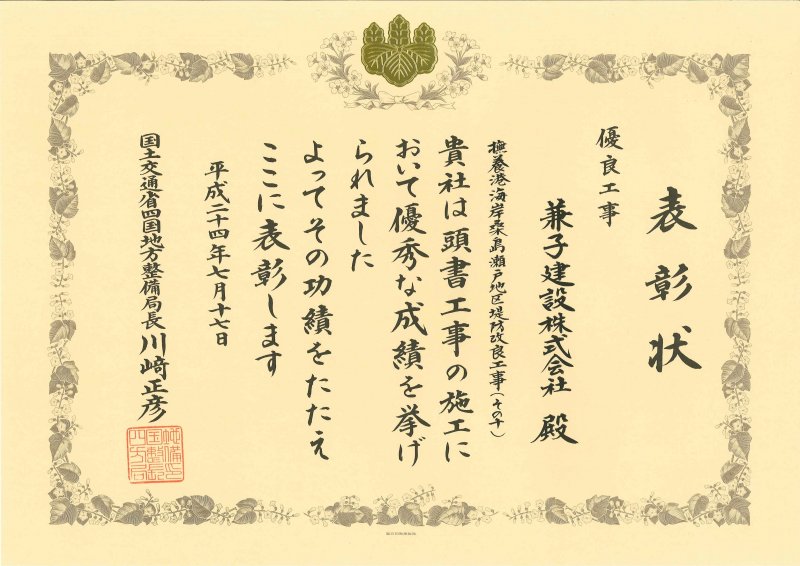 表彰状
優良工事
兼子建設株式会社 殿
撫養港海岸桑島瀬戸地区堤防改良工事（その十）
貴社は頭書工事の施工に
おいて優秀な成績を挙げ
られました
よってその功績をたたえ
ここに表彰します
平成二十四年七月十七日
国土交通省四国地方整備局長 川﨑正彦